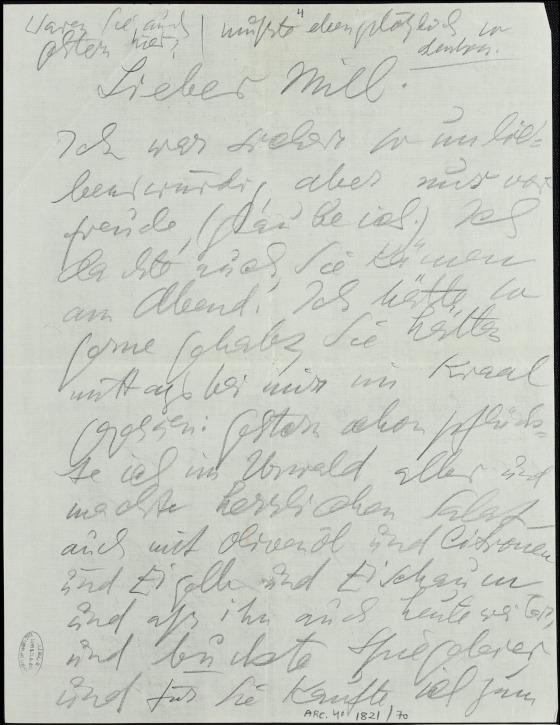 Waren Sie auch
gestern hier?
mußte eben plötzlich so
denken.
Lieber Will.
Ich war sicher so unlie-
benswürdig, aber nur vor
freude, (glaube ich.) Ich
dachte auch, Sie kämen
am Abend. Ich hätte so
gerne gehabt, Sie hätten
mittags bei mir im Kraal
gegessen. gestern schon pflück-
te ich im Urwald alles und
machte herrlichen Salat
auch mit Olivenöl und Citronen
und Eigelb und Eischaum
und aß ihn auch heute weiter,
und buckte Spiegeleier
und für Sie kaufte ich zum
ARC. 4° 1821 / 70